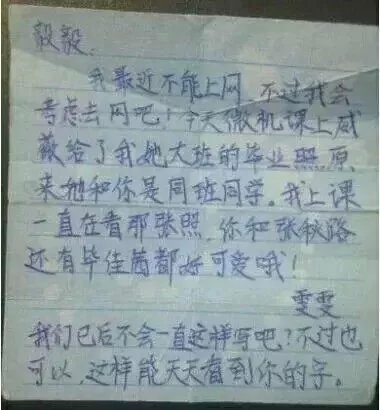 毅毅:
我最近不能上网,不过我会
考虑去网吧!今天微机课上威
薇给了我她大班的毕业照,原
来她和你是同班同学。我上课
一直在看那张照,你和张秋路
还有毕佳茜都好可爱哦!
雯雯
我们已后不会一直这样写吧?不过也
可以,这样能天天看到你的字。